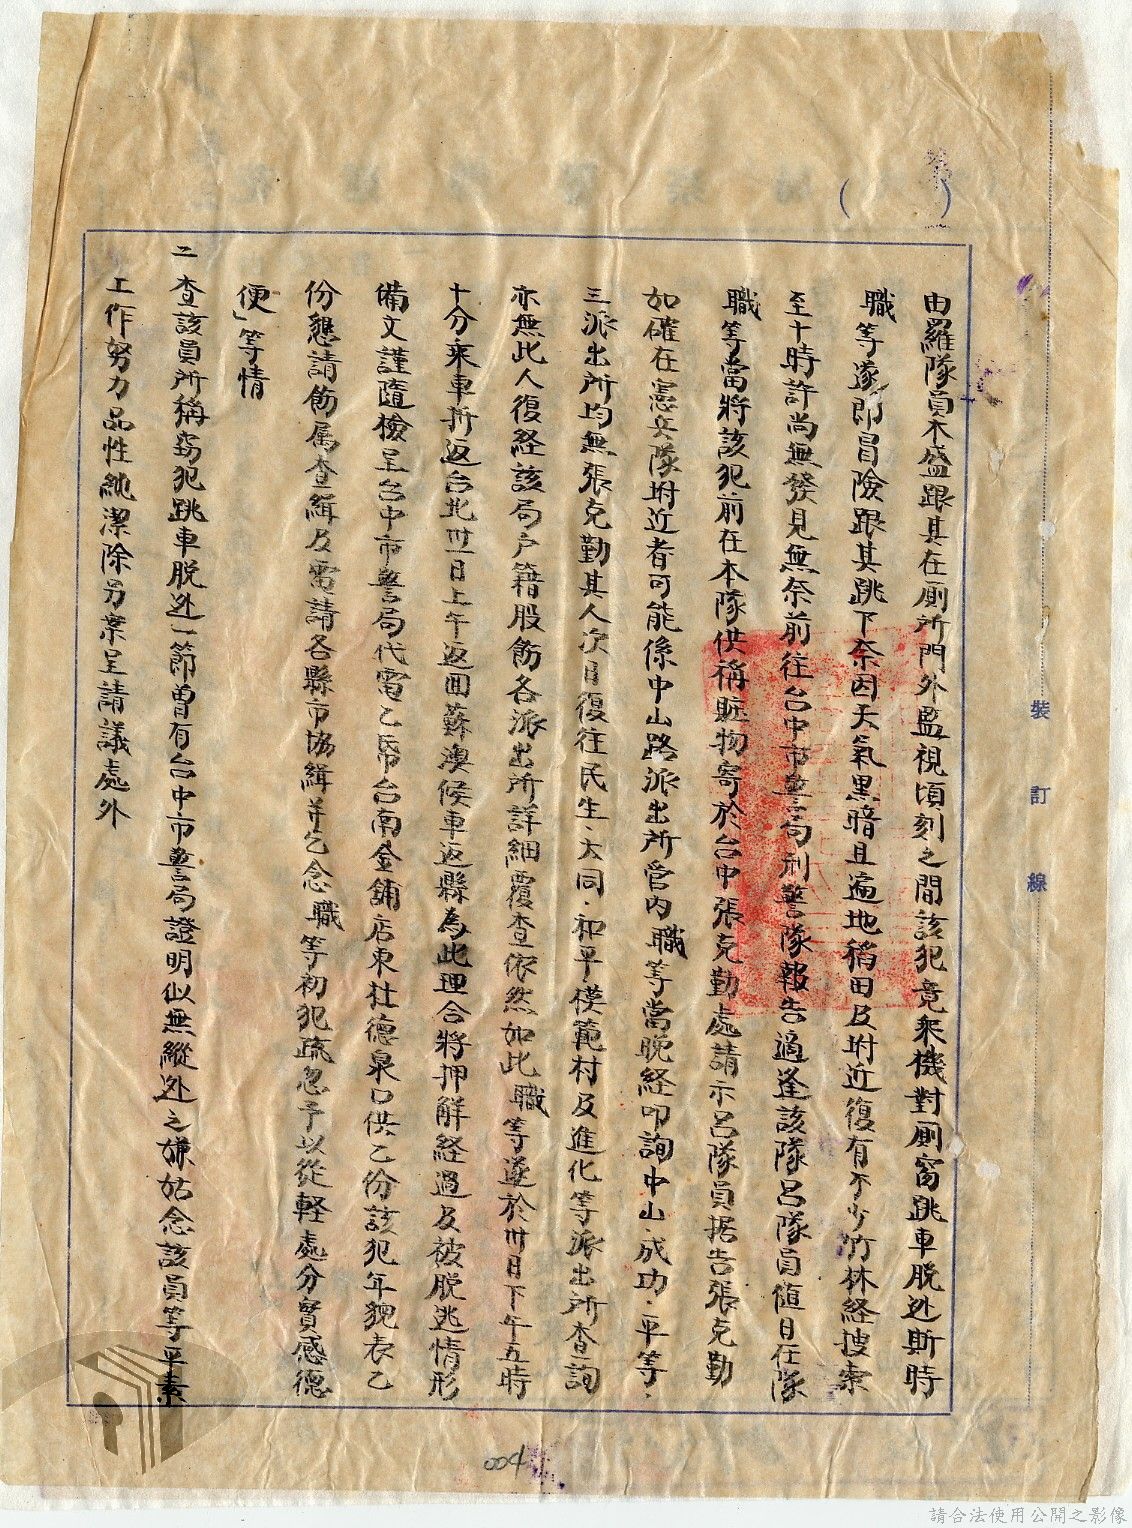 由羅隊員木盛跟其在厠所門外監視頃刻之間該犯竟乘機對厠窗跳車脫逃斯時
職等遂即冒險跟其跳下奈因天氣黑暗且遍地稻田及附近復有不少竹林経搜索
至十時許尚無發見無奈前往台中市警局刑警隊報告適逢該隊呂隊員值日任隊
職等當將該犯前在本隊供稱賍物寄於台中張克勤處請示呂隊員据告張克勤
如確在憲兵隊附近者可能係中山路派出所管内職等當晚経叩詢中山.成功.平等.
三派出所均無張克勤其人次日復往民生.大同.和平模範村及進化等派出所查詢
亦無此人復経該局戶籍股飭各派出所詳細覆查依然如此職等遂於卅日下午五時
十分乘車折返台北卅一日上午返回蘇澳候車返縣為此理合將押解経過及被脫逃情形
備文謹隨檢呈台中市警局代電乙帋台南金舖店東杜德泉口供乙份該犯年貌表乙
份懇請飭属查緝及電請各縣市協緝并乞念職等初犯疏忽予以從軽處分實感德
便」等情
二 查該員所稱竊犯跳車脫逃一節曾有台中市警局證明似無縱逃之嫌姑念該員等平素
工作努力品性純潔除另案呈請議處外
裝訂線
004
請合法使用公開之影像